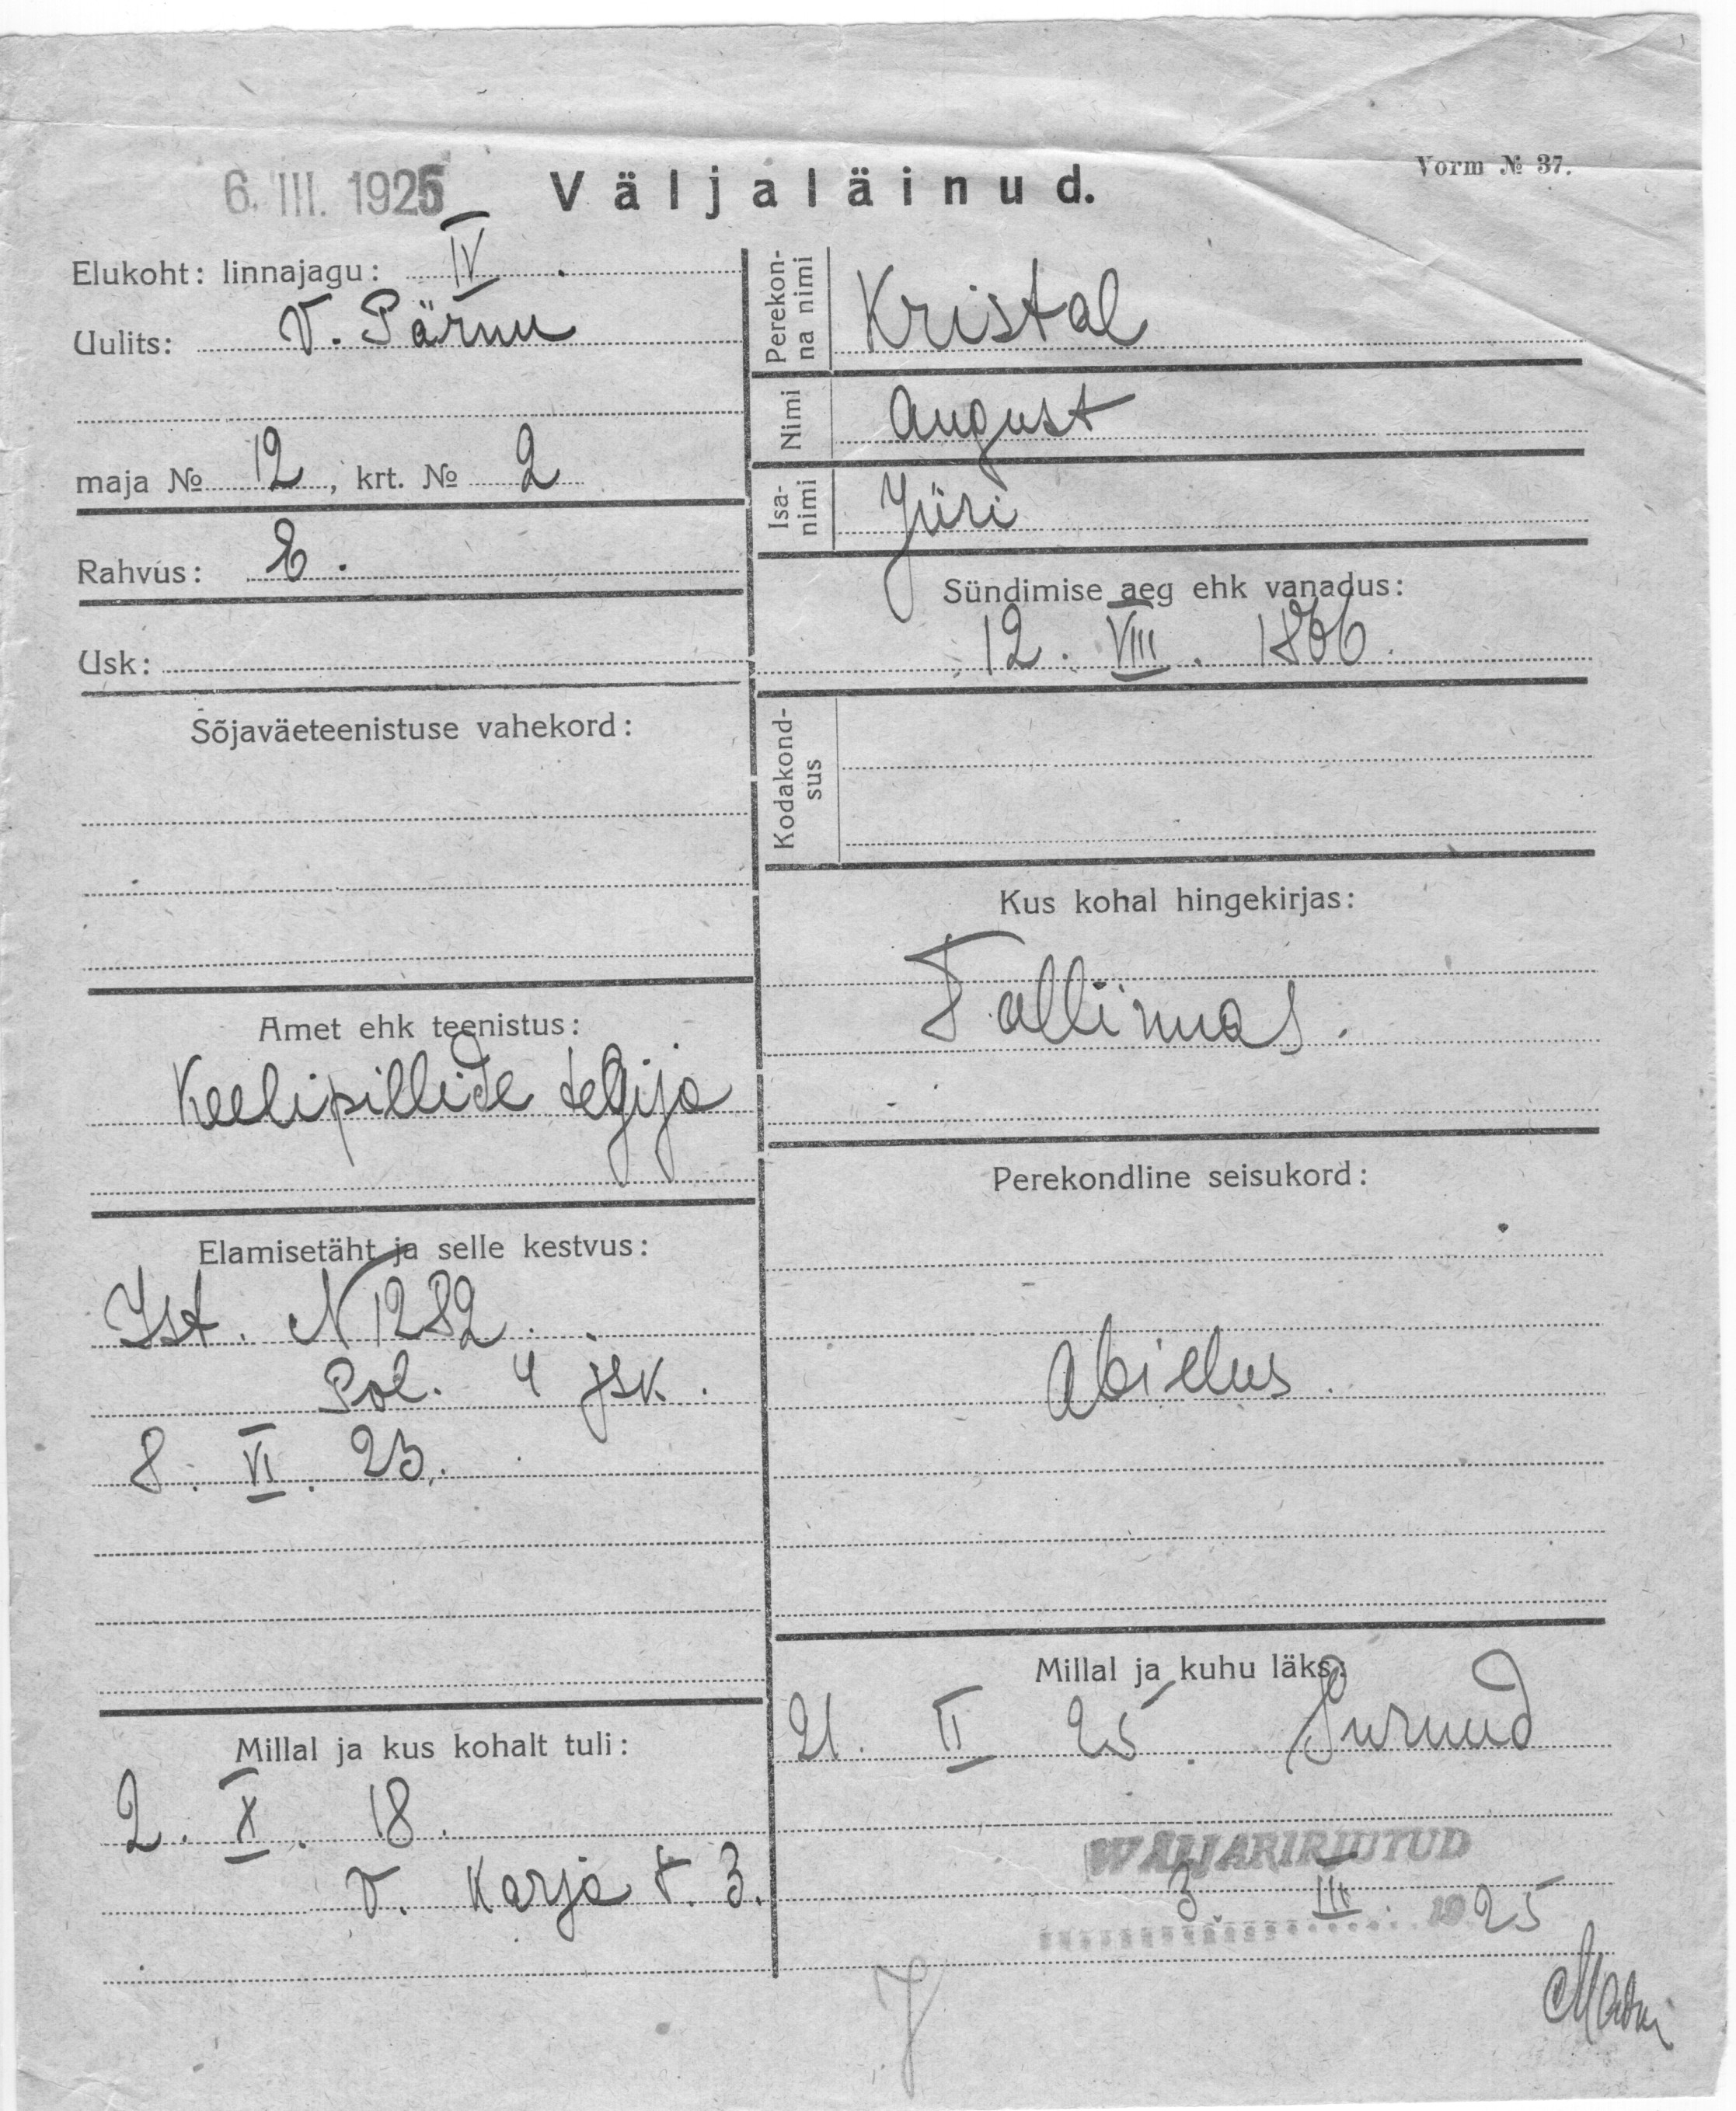 6. III. 1925
Väljaläinud.
Vorm № 37.
Elukoht: linnajagu: IV.
Uulits: V. Pärnu
maja № 12, krt. № 2
Rahvus: E.
Usk:
Sõjaväeteenistuse vahekord:
Amet ehk teenistus:
Keelipillide tegija
Elamisetäht ja selle kestvus:
Ist. N 1282.
Pol. 4 jsk.
8. VI. 23.
Millal ja kus kohalt tuli:
2. X. 18.
V. Karja t. 3.
Perekon-
na nimi
Kristal
Nimi
August
Isa-
nimi
Jüri
Sündimise aeg ehk vanadus:
12. VIII.
Kodakond-
sus
Kus kohal hingekirjas:
Tallinnas.
Perekondline seisukord:
Abielus.
Millal ja kuhu läks:
21. II 25. Surnud
WÄLJAKIRJUTUD
3. III. 1925